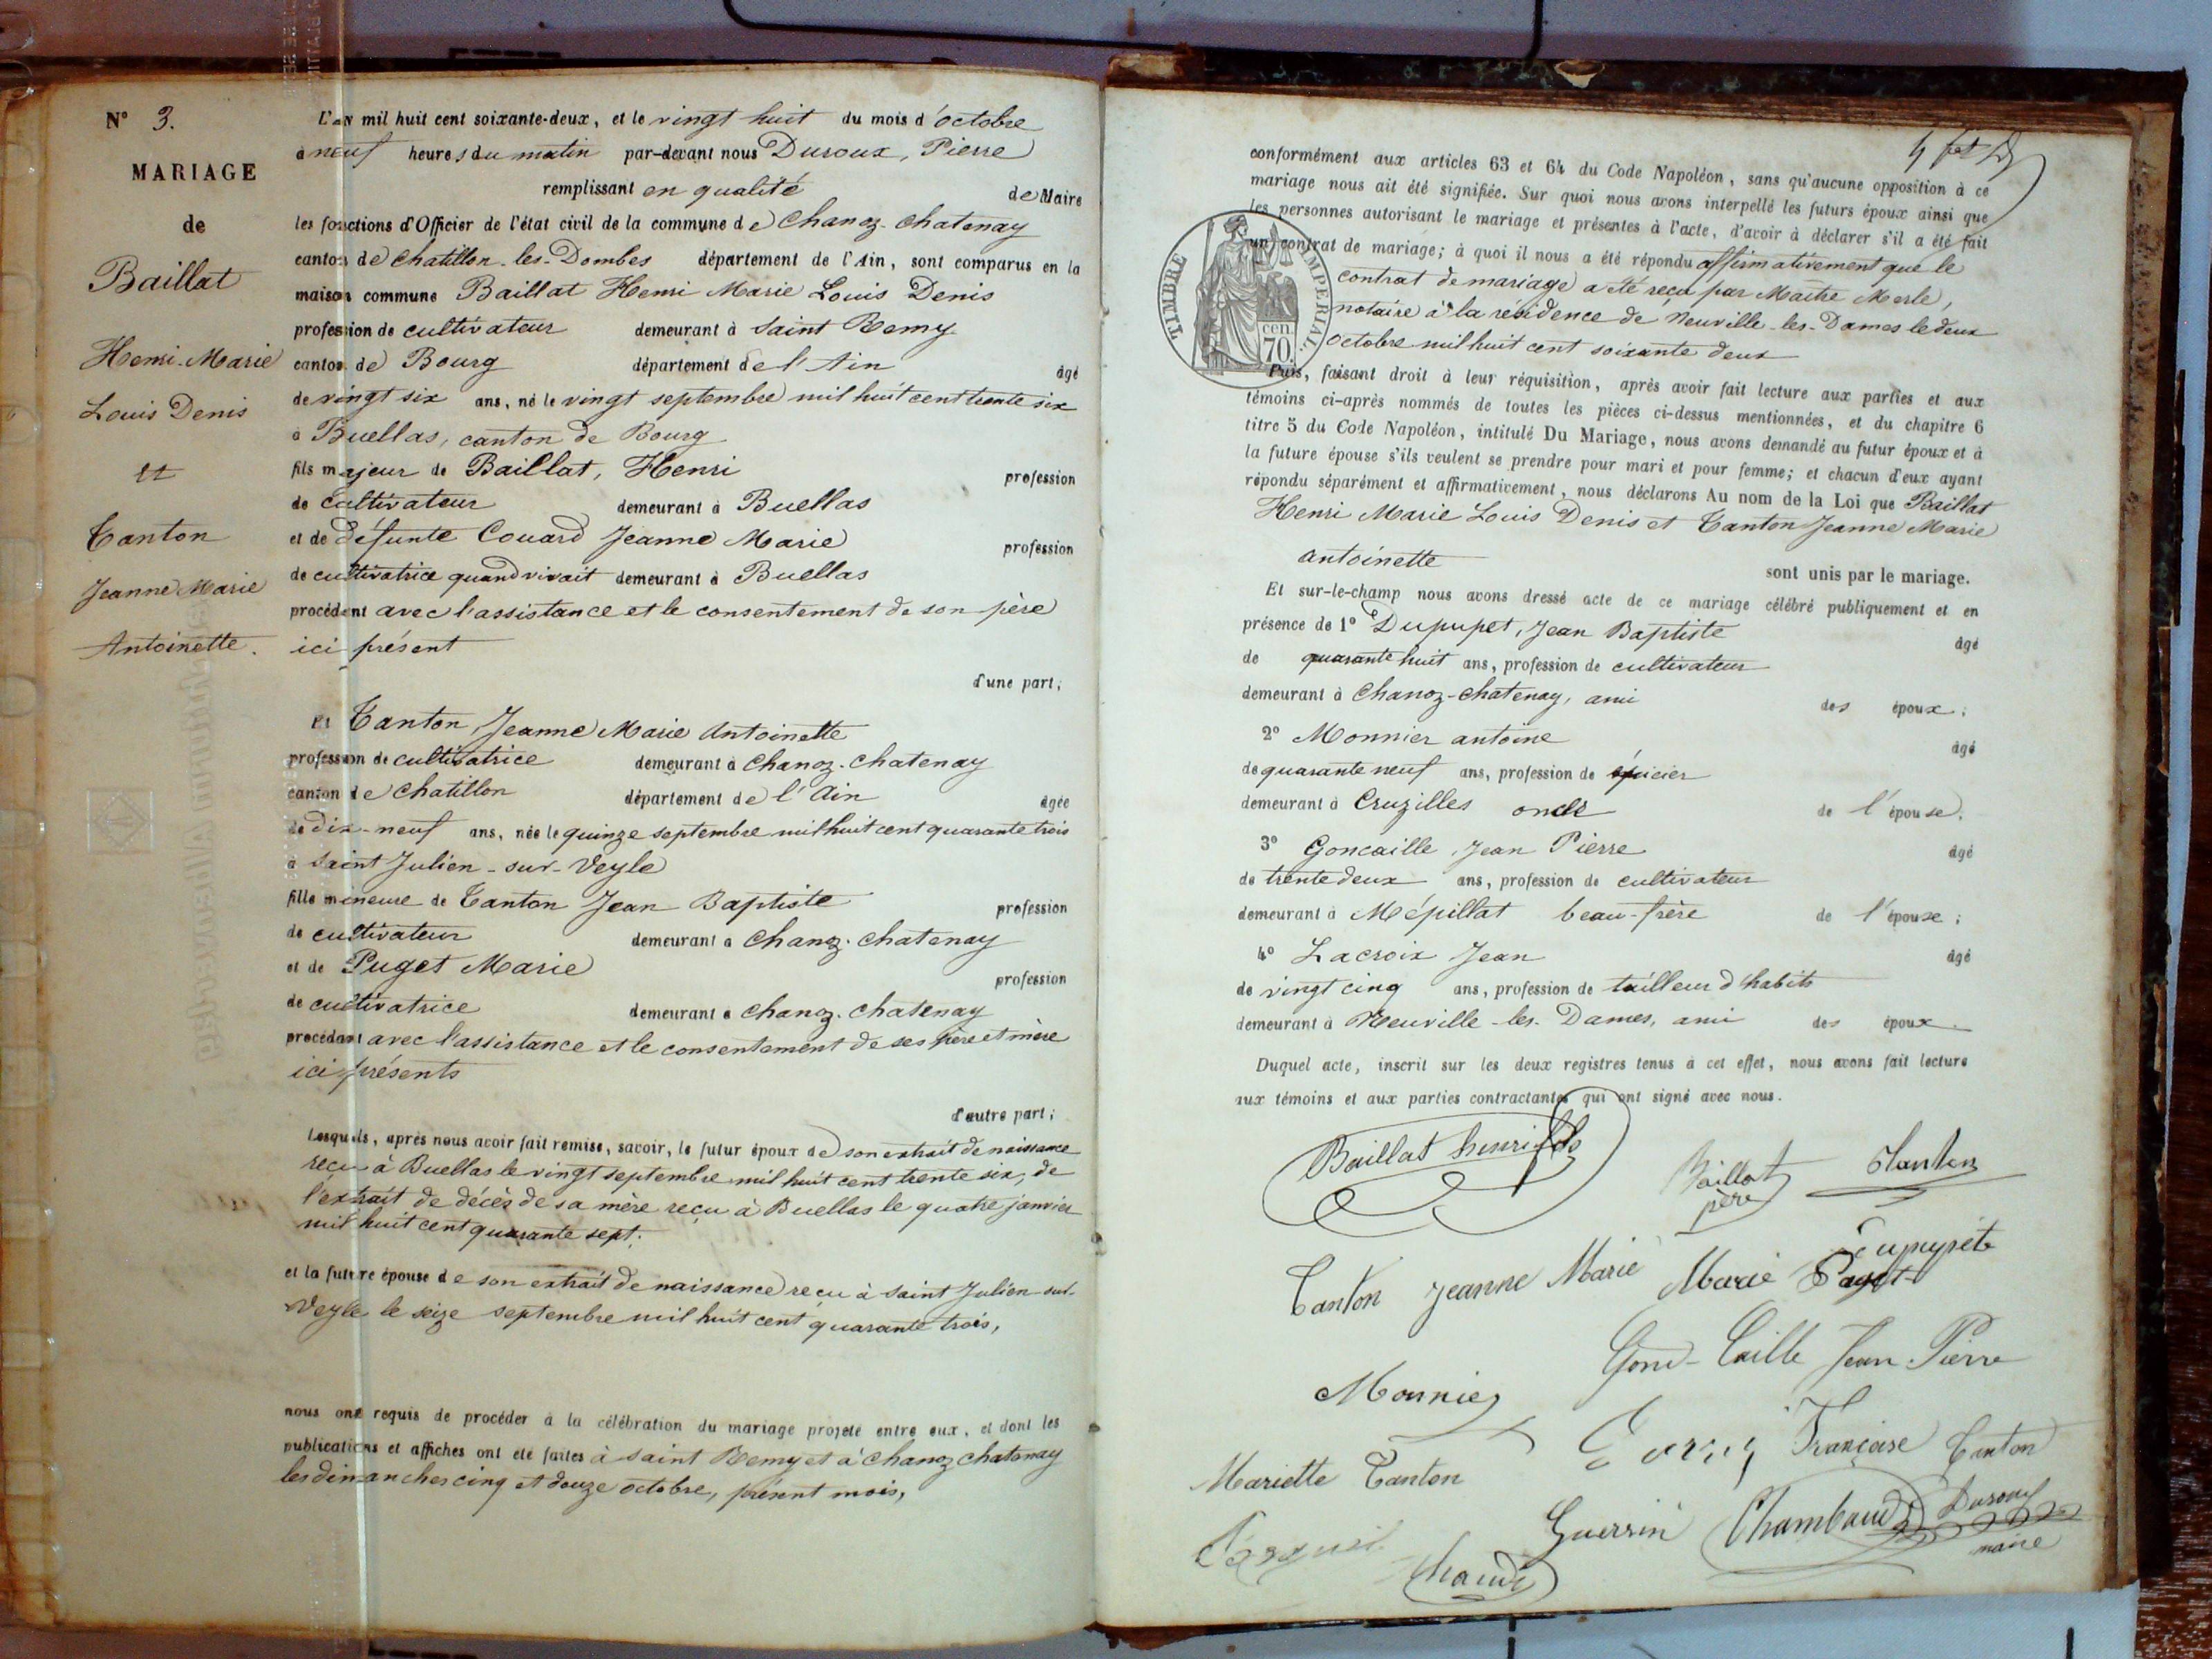 N° 3.
MARIAGE
de
Baillat
Henri-Marie
Louis Denis
et
Tanton
Jeanne Marie
Antoinette.
L'an mil huit cent soixante-deux, et le vingt huit du mois d'octobre
à neuf heures du matin par-devant nous Duroux, Pierre
remplissant en qualité de Maire
les fonctions d'Officier de l'état civil de la commune de Chanoz-Chatenay
canton de Chatillon-les-Dombes département de l'Ain, sont comparus en la
maison commune Baillat Henri Marie Louis Denis
profession de cultivateur demeurant à Saint Remy
canton de Bourg département de l'Ain âgé
de vingt six ans, né le vingt septembre mil huit cent trente six
à Buellas, canton de Bourg
fils majeur de Baillat, Henri profession
de cultivateur demeurant à Buellas
et de défunte Couard Jeanne Marie profession
de cultivatrice quand vivait demeurant à Buellas
procédant avec l'assistance et le consentement de son père
ici présent
d'une part;
Et Tanton Jeanne Marie Antoinette
profession de cultivatrice demeurant à Chanoz-Chatenay
canton de Chatillon département de l'Ain âgée
de dix-neuf ans, née le quinze septembre mil huit cent quarante trois
à Saint Julien-sur-Veyle
fille mineure de Tanton Jean Baptiste profession
de cultivateur demeurant à Chanoz-Chatenay
et de Puget Marie profession
de cultivatrice demeurant à Chanoz-Chatenay
procédant avec l'assistance et le consentement de ses père et mère
ici présents
d'autre part;
Lesquels, après nous avoir fait remise, savoir, le futur époux de son extrait de naissance
reçu à Buellas le vingt septembre mil huit cent trente six, de
l'extrait de décès de sa mère reçu à Buellas le quatre janvier
mil huit cent quarante sept;
et la future épouse de son extrait de naissance reçu à Saint Julien-sur-
Veyle le seize septembre mil huit cent quarante trois,
nous ont requis de procéder à la célébration du mariage projeté entre eux, et dont les
publications et affiches ont été faites à Saint Remy et à Chanoz Chatenay
les dimanches cinq et douze octobre, présent mois,
conformément aux articles 63 et 64 du Code Napoléon, sans qu'aucune opposition à ce
mariage nous ait été signifiée. Sur quoi nous avons interpellé les futurs époux ainsi que
les personnes autorisant le mariage et présentes à l'acte, d'avoir à déclarer s'il a été fait
un contrat de mariage; à quoi il nous a été répondu affirmativement que le
contrat de mariage a été reçu par Maître Merle,
notaire à la résidence de Neuville-les-Dames le deux
octobre mil huit cent soixante deux
TIMBRE IMPERIAL
cen.
70.
Puis, faisant droit à leur réquisition, après avoir fait lecture aux parties et aux
témoins ci-après nommés de toutes les pièces ci-dessus mentionnées, et du chapitre 6
titre 5 du Code Napoléon, intitulé Du Mariage, nous avons demandé au futur époux et à
la future épouse s'ils veulent se prendre pour mari et pour femme; et chacun d'eux ayant
répondu séparément et affirmativement, nous déclarons Au nom de la Loi que Baillat
Henri Marie Louis Denis et Tanton Jeanne Marie
antoinette
sont unis par le mariage.
Et sur-le-champ nous avons dressé acte de ce mariage célébré publiquement et en
présence de 1° Dupupet, Jean Baptiste âgé
de quarante huit ans, profession de cultivateur
demeurant à Chanoz-Chatenay, ami des époux;
2° Monnier antoine âgé
de quarante neuf ans, profession de épicier
demeurant à Cruzilles oncle de l'épouse;
3° Goncaille, Jean Pierre âgé
de trente deux ans, profession de cultivateur
demeurant à Mépillat beau-frère de l'épouse;
4° Lacroix Jean âgé
de vingt cinq ans, profession de tailleur d'habits
demeurant à Neuville-les-Dames, ami des époux.
Duquel acte, inscrit sur les deux registres tenus à cet effet, nous avons fait lecture
aux témoins et aux parties contractantes qui ont signé avec nous.
Baillat henri fils
Baillat
père
Tanton
Dupupet
Tanton Jeanne Marie
Marie Puget
Gond-Caille Jean-Pierre
Monnier
Françoise Tanton
Mariette Tanton
Guerrin
Chambaud
Duroux
maire